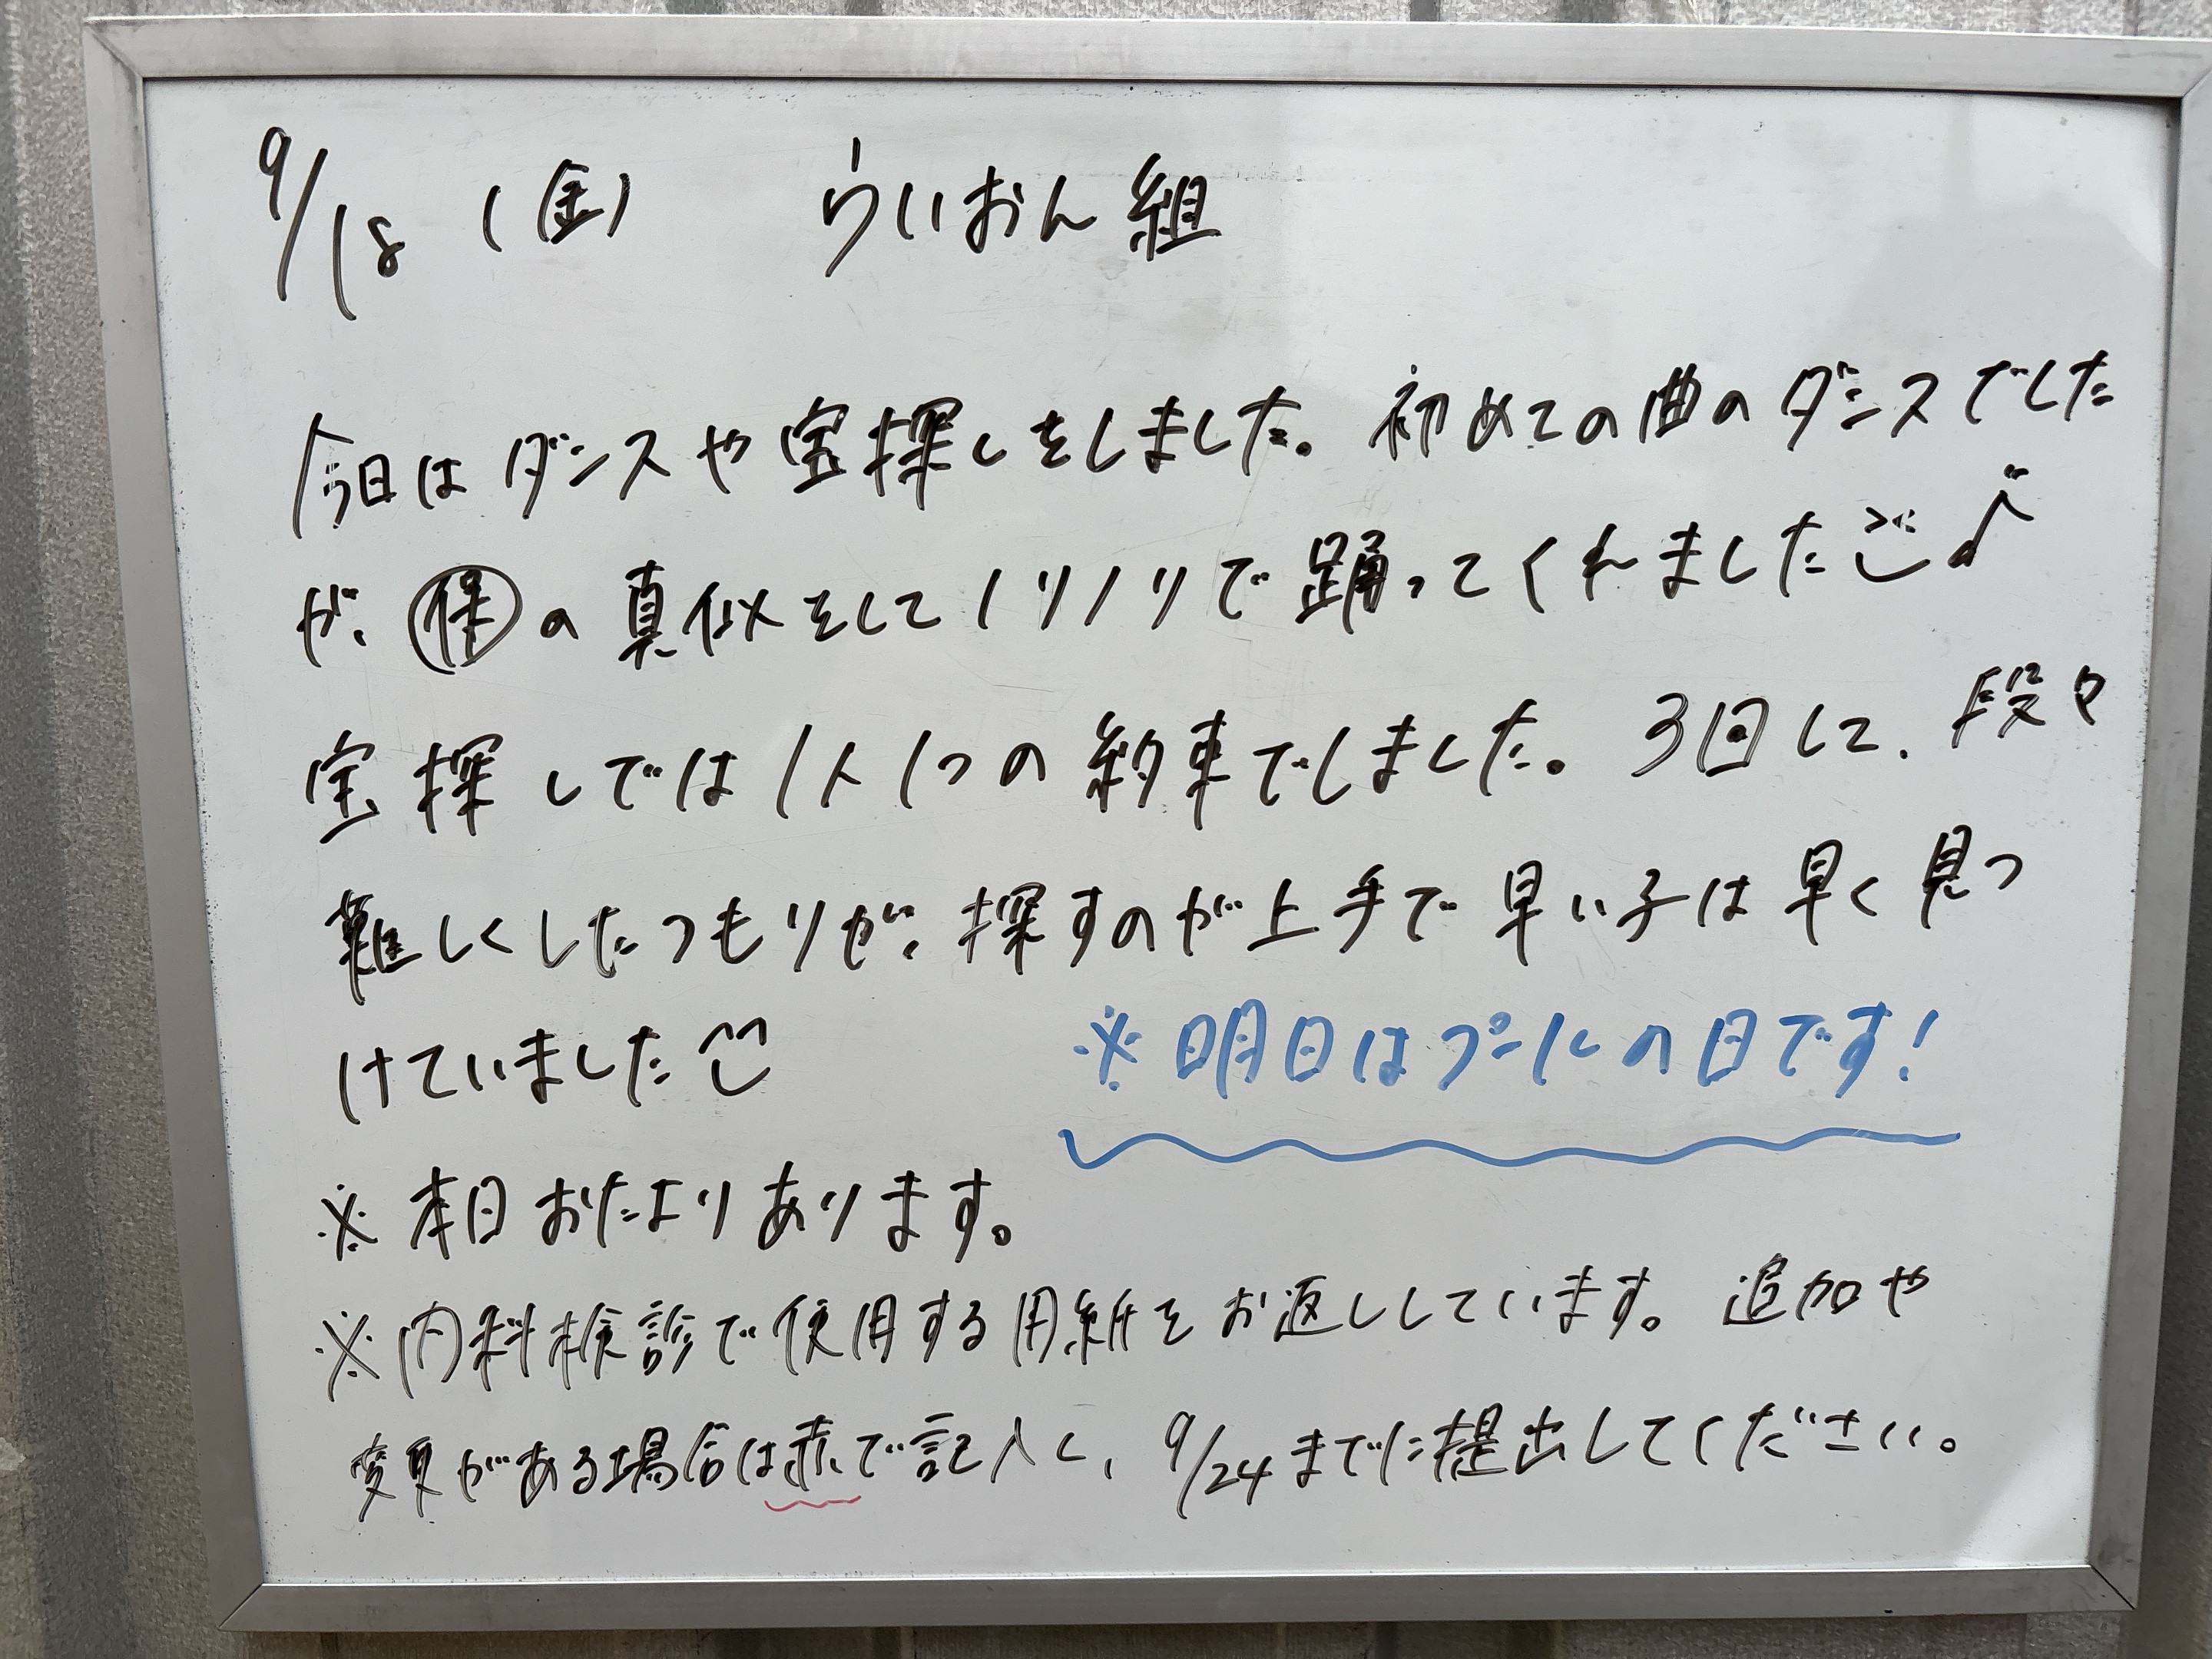 9/18 (金) らいおん組
今日はダンスや宝探しをしました。初めての曲のダンスでした
が、㋭の真似をしてノリノリで踊ってくれました♪
宝探しでは1人1つの約束でしました。3回して、段々
難しくしたつもりが、探すのが上手で早い子は早く見つ
けていました
※明日はプールの日です!
※本日おたよりあります。
※内科検診で使用する用紙をお返ししています。追加や
変更がある場合は赤で記入し、9/24までに提出してください。